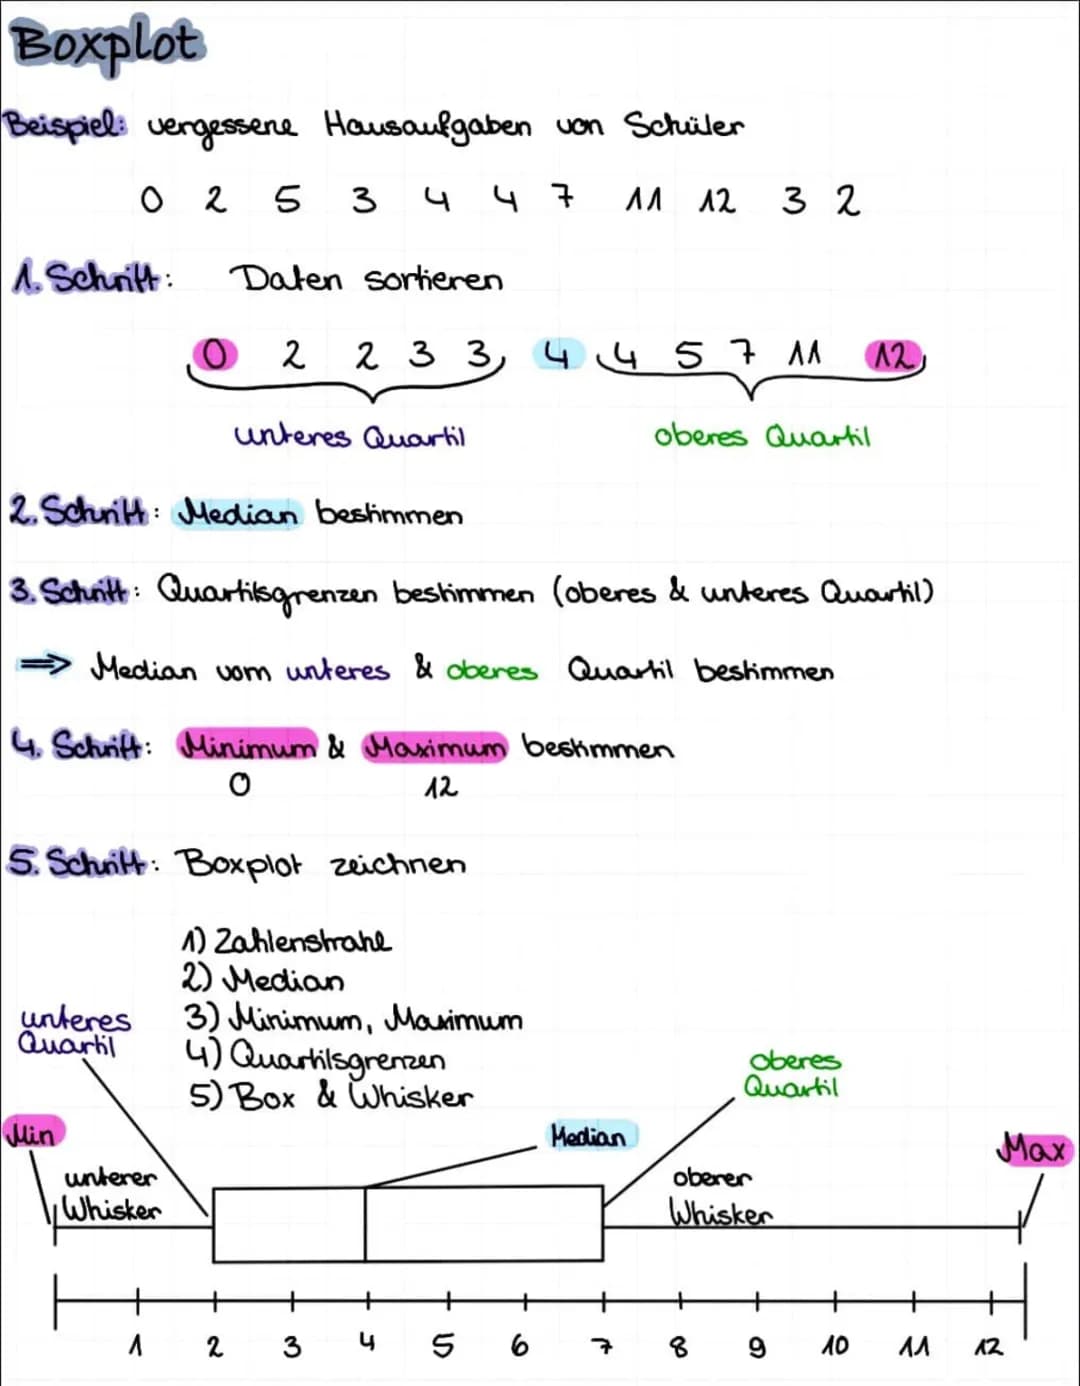 Boxplot
Beispiel: vergessene Hausaufgaben von Schüler
0 2 5 3 4 4 7 11 12 3 2
1. Schritt: Daten sortieren
0 2 2 3 3 4 4 5 7 11 12
unteres Quartil oberes Quartil
2. Schritt: Median bestimmen
3. Schritt: Quartilsgrenzen bestimmen (oberes & unteres Quartil)
⇒ Median vom unteres & oberes Quartil bestimmen
4. Schritt: Minimum & Maximum bestimmen
0 12
5. Schritt: Boxplot zeichnen
1) Zahlenstrahl
2) Median
3) Minimum, Maximum
4) Quartilsgrenzen
5) Box & Whisker
unteres
Quartil
oberes
Quartil
Min
Median
Max
unterer
Whisker
oberer
Whisker
1 2 3 4 5 6 7 8 9 10 11 12